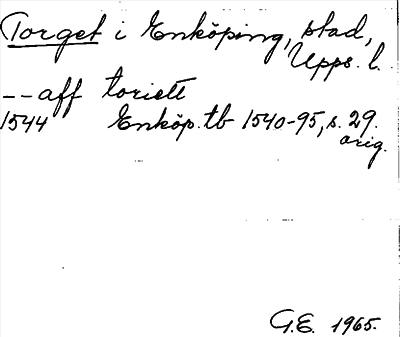 Torget i Enköping, stad,
Upps. l.
--aff toriett
1544 Enköp. tb 1540-95, s. 29.
orig.
G.E. 1965.